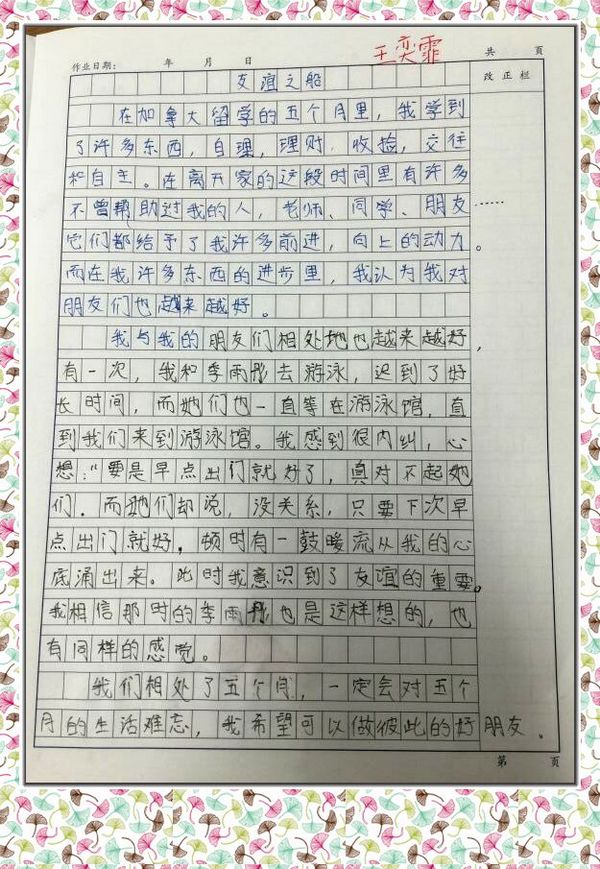 作业日期： 年 月 日 王奕霏 共 页
友谊之船 改正栏
在加拿大留学的五个月里，我学到
了许多东西，自理，理财，收捡，交往
和自主。在离开家的这段时间里有许多
不曾帮助过我的人，老师、同学、朋友……
它们都给予了我许多前进，向上的动力。
而在我许多东西的进步里，我认为我对
朋友们也越来越好。
我与我的朋友们相处地也越来越好，
有一次，我和李雨彤去游泳，迟到了好
长时间，而她们也一直等在游泳馆，直
到我们来到游泳馆。我感到很内纠，心
想：“要是早点出门就好了，真对不起她
们。而她们却说，没关系，只要下次早
点出门就好，顿时有一鼓暖流从我的心
底涌出来。此时我意识到了友谊的重要。
我相信那时的李雨彤也是这样想的，也
有同样的感觉。
我们相处了五个月，一定会对五个
月的生活难忘，我希望可以做彼此的好朋友。
第 页